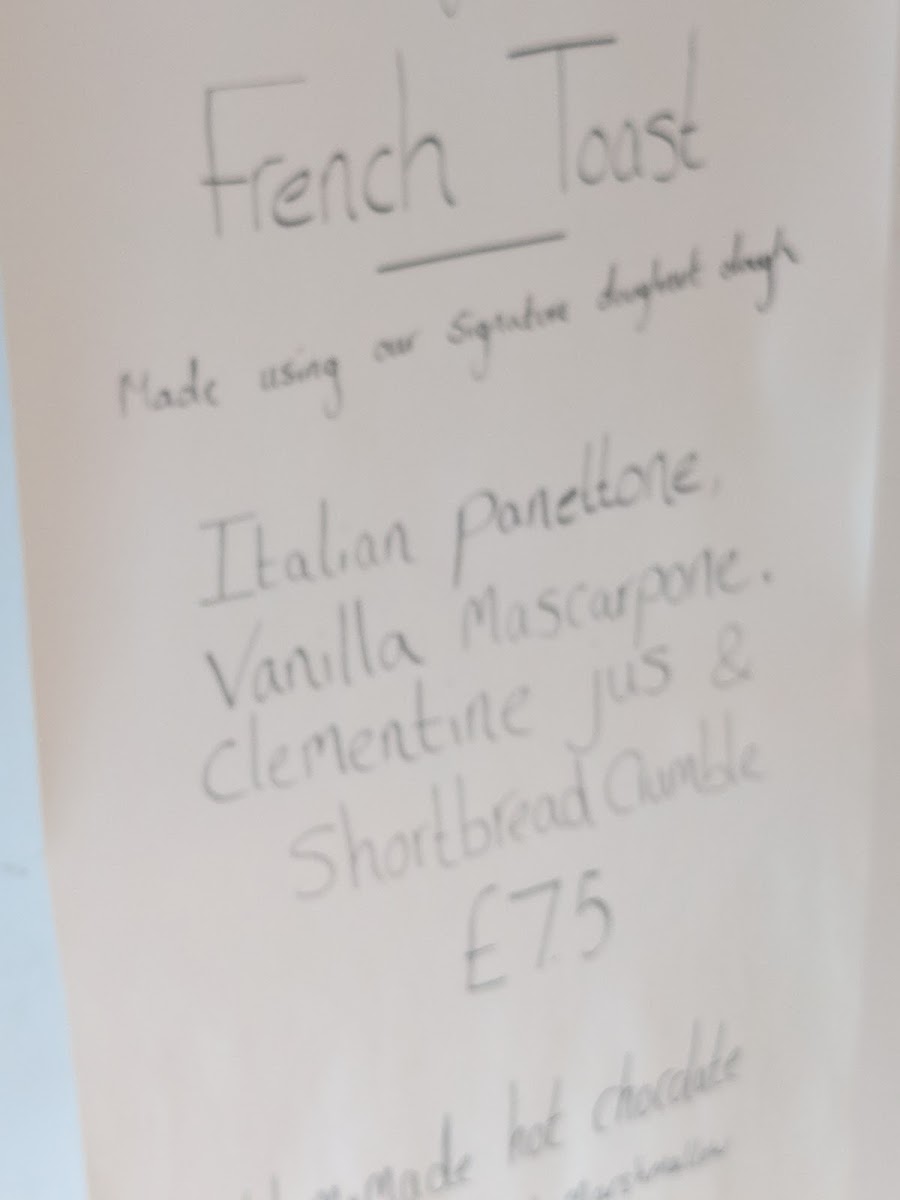 French Toast
Made using our signature doughnut dough
Italian panettone,
Vanilla Mascarpone.
Clementine jus &
Shortbread Crumble
£7.5
made hot chocolate
Marshmallow